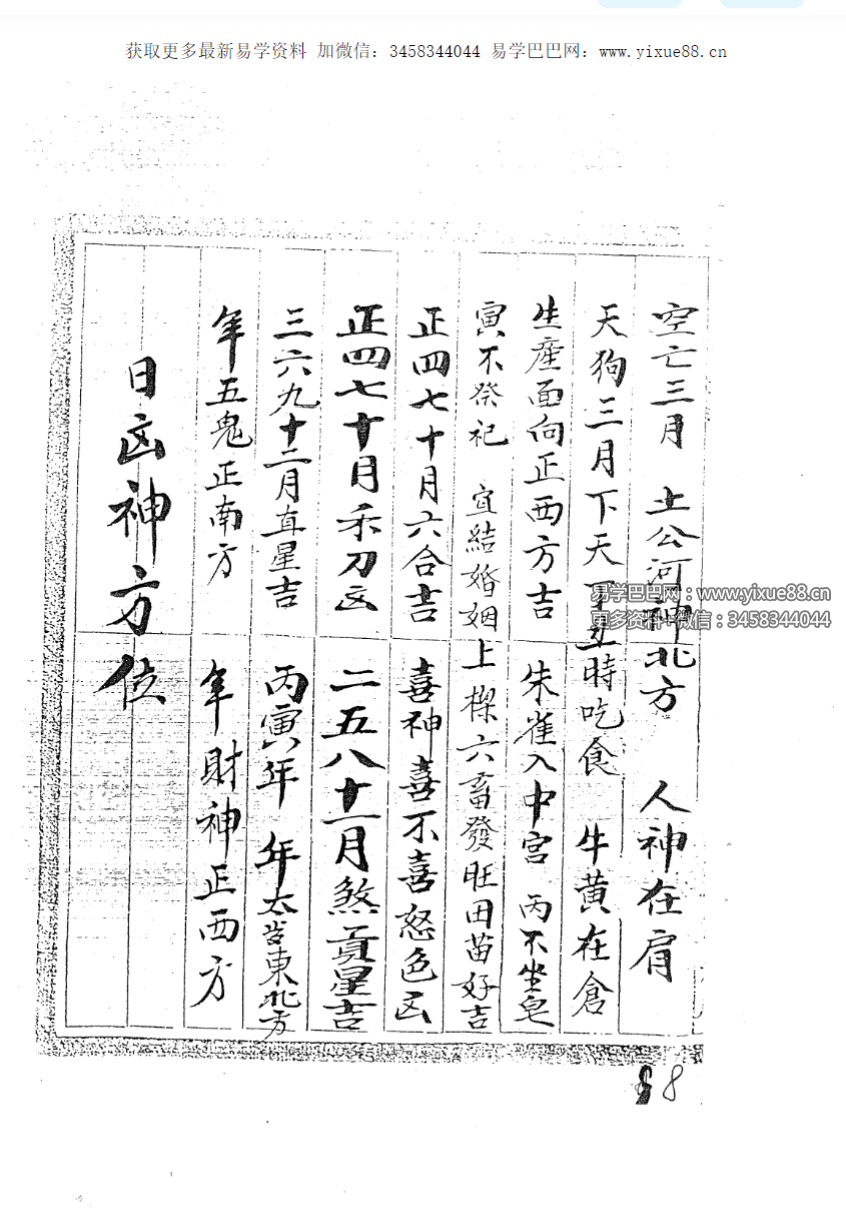 获取更多最新易学资料 加微信：3458344044 易学巴巴网：www.yixue88.cn
空亡三月 土公河神北方 人神在肩
天狗三月下天 時吃食 牛黄在倉
生産面向正西方吉 朱雀入中宫 丙不坐皂
寅不祭祀 宜結婚姻上樑六畜發旺田苗好吉
正四七十月六合吉 喜神喜不喜怒色凶
正四七十月禾刀凶 二五八十一月煞貢星吉
三六九十二月直星吉 丙寅年 年太岁東北方
年五鬼正南方 年財神正西方
日凶神方位
易学巴巴网：www.yixue88.cn
更多资料+微信：3458344044
8